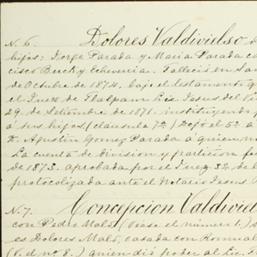 N. 6. Dolores Valdivielso
hijos; Jorge Parada y Maria Parada
cisco Beech y Echeverria. Falleció en San
de Octubre de 1874, bajo el testamento
el Juez de Tlalpam Lic. Jesus del
29 de Setiembre de 1871, instituyendo
á sus hijos (clausula 7a.) Dejó el 5o á
D. Agustin Gomez Parada á quien
La cuenta de division y particion
de 1875, aprobada por el Juez 3o. de
protocolizada ante el Notario Jesus
N. 7. Concepcion Valdivi
con Pedro Malo (Vease el número 1.)
es Dolores Malo, casada con Romual
(V. el no. 8.) quien dió poder al Lic.